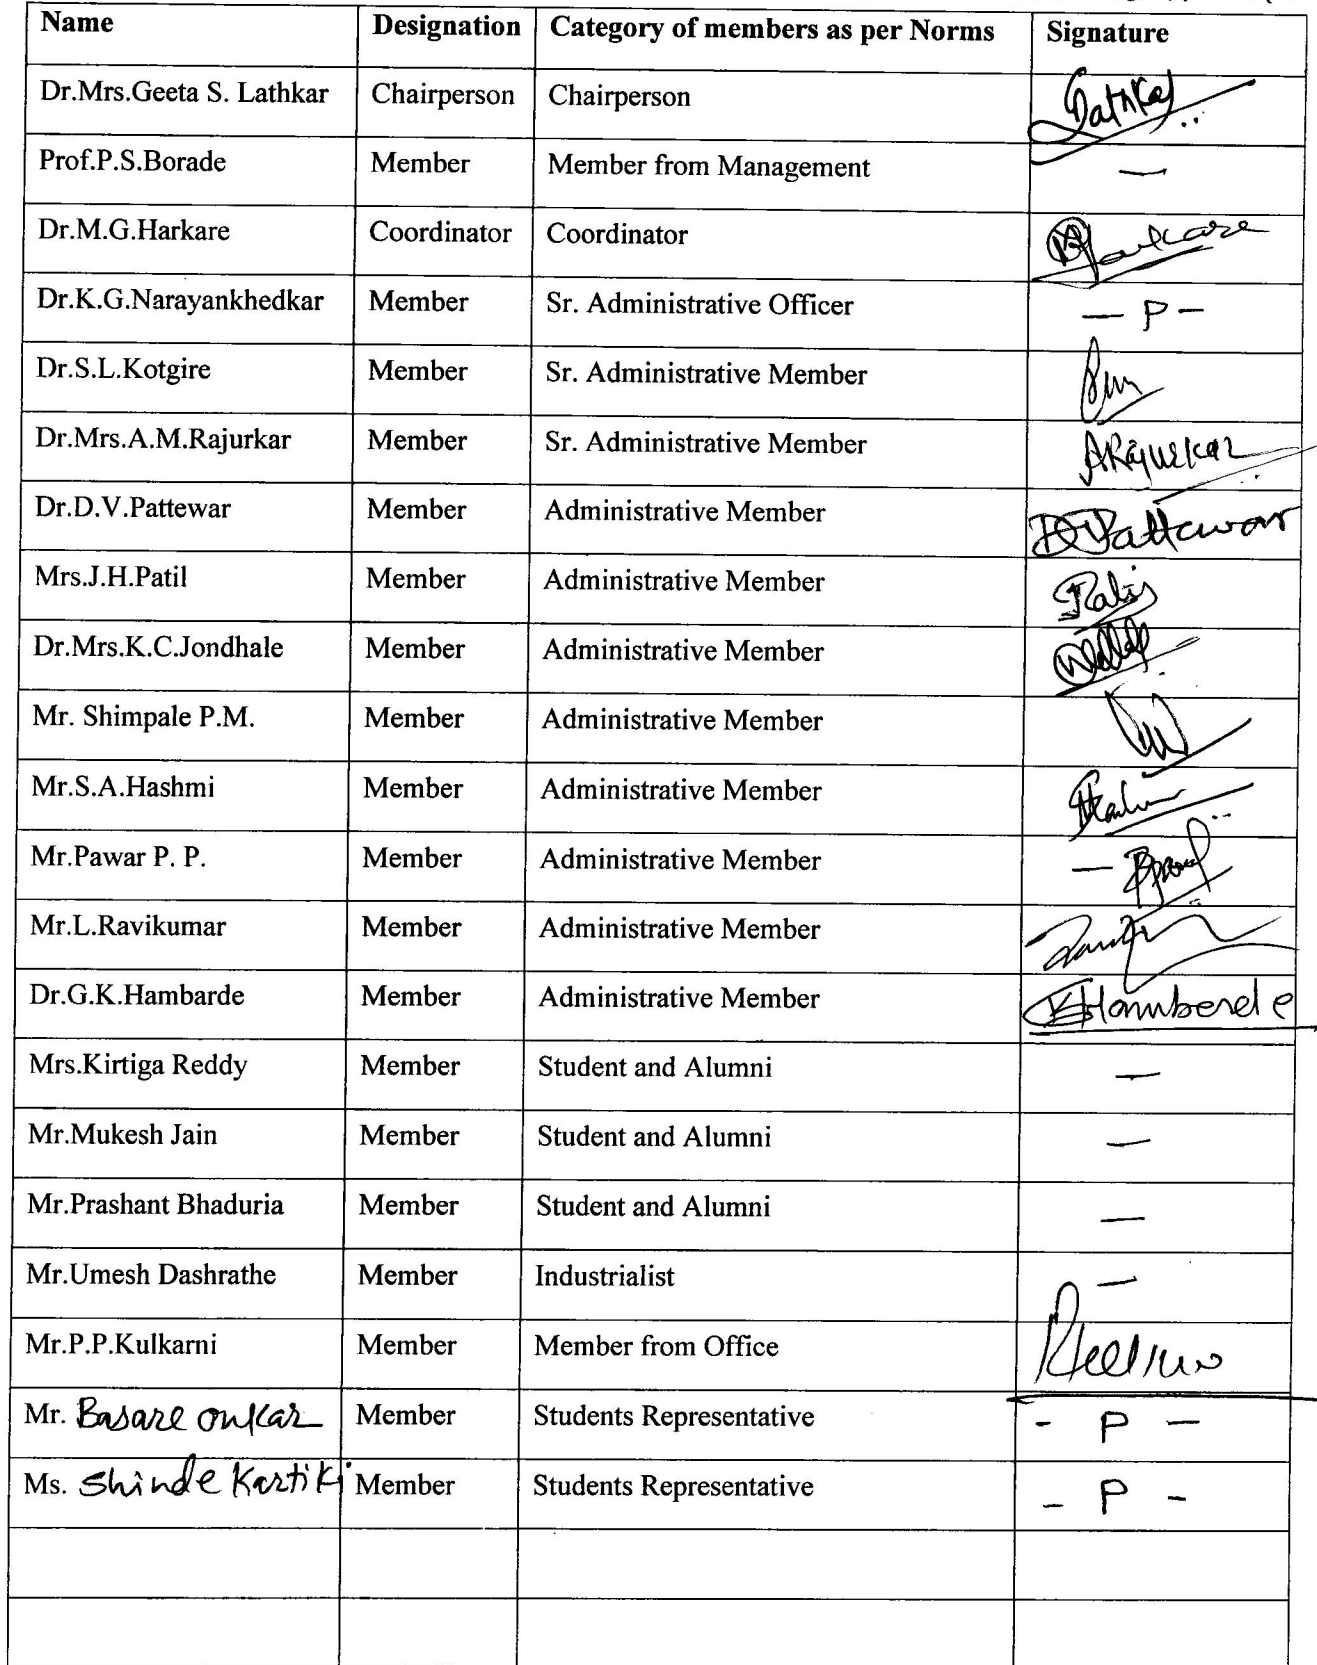 Name Designation Category of members as per Norms Signature
Dr.Mrs.Geeta S. Lathkar Chairperson Chairperson Lathkar
Prof.P.S.Borade Member Member from Management —
Dr.M.G.Harkare Coordinator Coordinator Harkare
Dr.K.G.Narayankhedkar Member Sr. Administrative Officer — P —
Dr.S.L.Kotgire Member Sr. Administrative Member
Dr.Mrs.A.M.Rajurkar Member Sr. Administrative Member ARajurkar
Dr.D.V.Pattewar Member Administrative Member DPattewar
Mrs.J.H.Patil Member Administrative Member
Dr.Mrs.K.C.Jondhale Member Administrative Member
Mr. Shimpale P.M. Member Administrative Member
Mr.S.A.Hashmi Member Administrative Member
Mr.Pawar P. P. Member Administrative Member —
Mr.L.Ravikumar Member Administrative Member
Dr.G.K.Hambarde Member Administrative Member Hambarde
Mrs.Kirtiga Reddy Member Student and Alumni —
Mr.Mukesh Jain Member Student and Alumni —
Mr.Prashant Bhaduria Member Student and Alumni —
Mr.Umesh Dashrathe Member Industrialist —
Mr.P.P.Kulkarni Member Member from Office
Mr. Basare Onkar Member Students Representative - P —
Ms. Shinde Kartiki Member Students Representative - P -